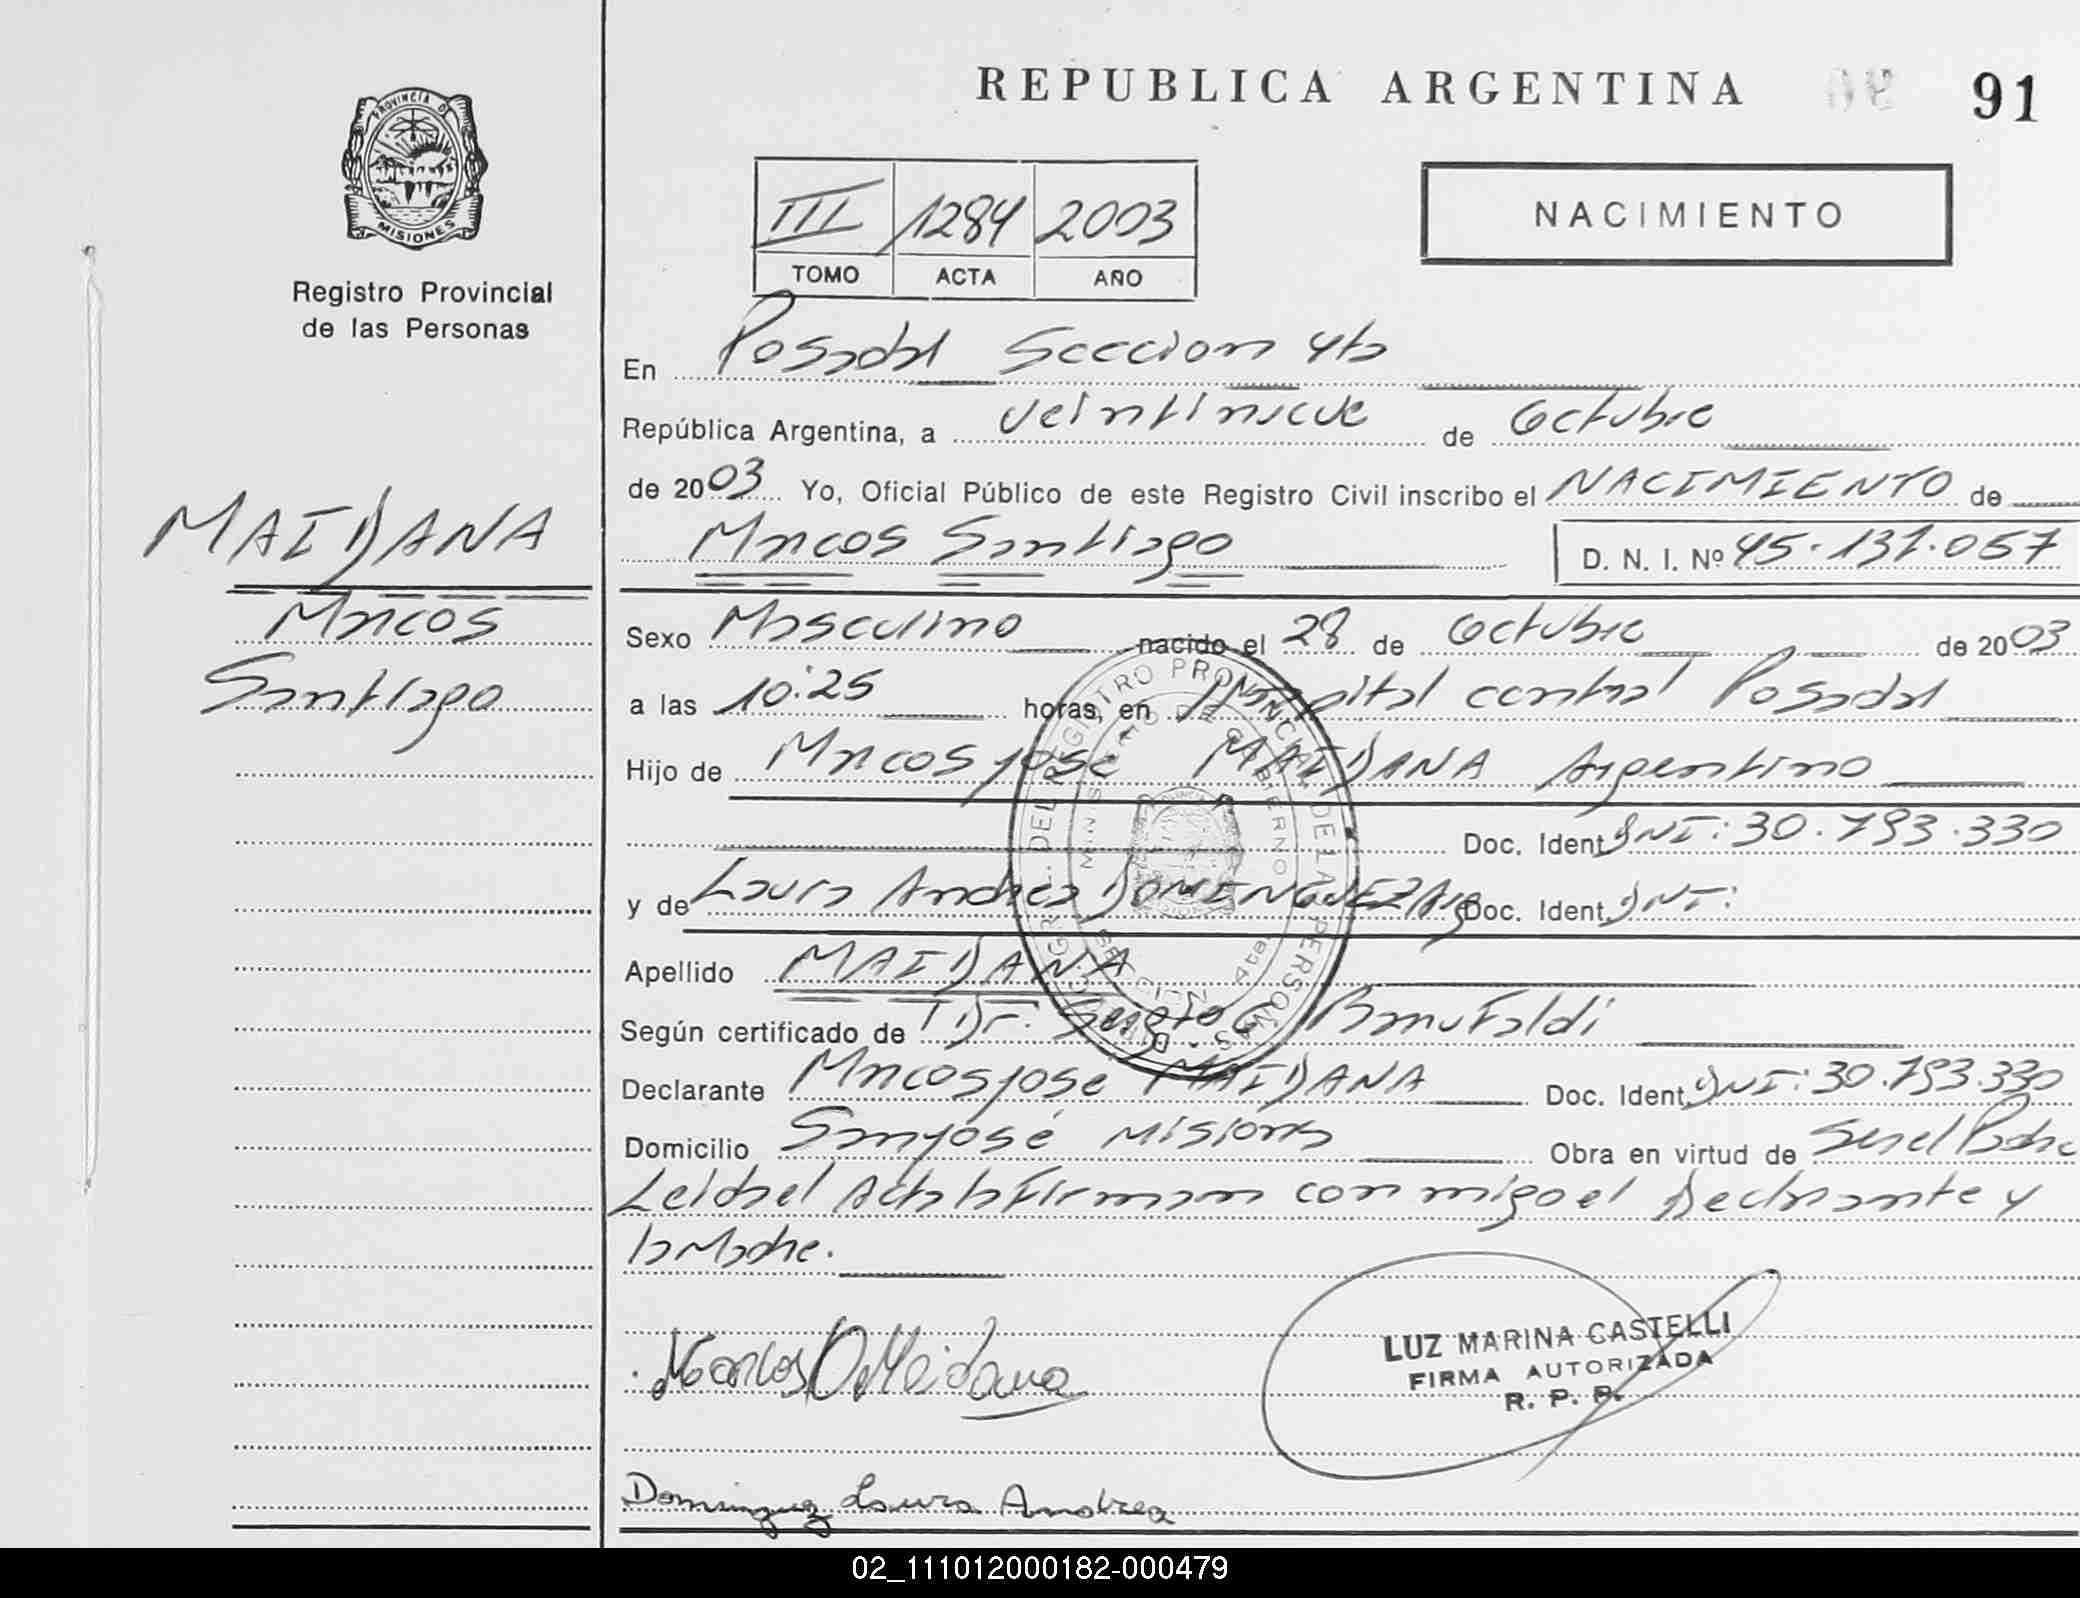 REPUBLICA ARGENTINA
91
PROVINCIA DE MISIONES
Registro Provincial
de las Personas
III 1284 2003
TOMO ACTA AÑO
NACIMIENTO
En Posadas Seccion 4ta
República Argentina, a veintinueve de Octubre
de 2003 Yo, Oficial Público de este Registro Civil inscribo el NACIMIENTO de
MAIDANA
Marcos Santiago
D. N. I. Nº 45.131.057
Marcos
Santiago
Sexo Masculino nacido el 28 de Octubre de 2003
a las 10:25 horas, en Hospital central Posadas
Hijo de Marcos jose MAIDANA Argentino
Doc. Ident. DNI: 30.793.330
y de Laura Andrea DOMINGUEZ Arg Doc. Ident. DNI:
Apellido MAIDANA
Según certificado de Dr. Sergio Bonufaldi
Declarante Marcos jose MAIDANA Doc. Ident. DNI: 30.793.330
Domicilio San josé Misiones Obra en virtud de Ser el Padre
Leida el Acta la Firman conmigo el Declarante y
la Madre.
DEL REGISTRO PROVINCIAL DE LAS PERSONAS
MINISTERIO DE GOBIERNO
SECCION 4ta.
Marcos Maidana
LUZ MARINA CASTELLI
FIRMA AUTORIZADA
R. P. P.
Dominguez Laura Andrea
02_111012000182-000479